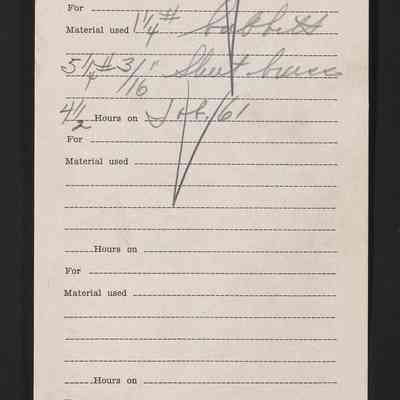 For
Material used 1 1/4 # babbitt
5 1/4 # 3/16" Sheet brass
4 1/2 Hours on Job. 61
For
Material used
Hours on
For
Material used
Hours on